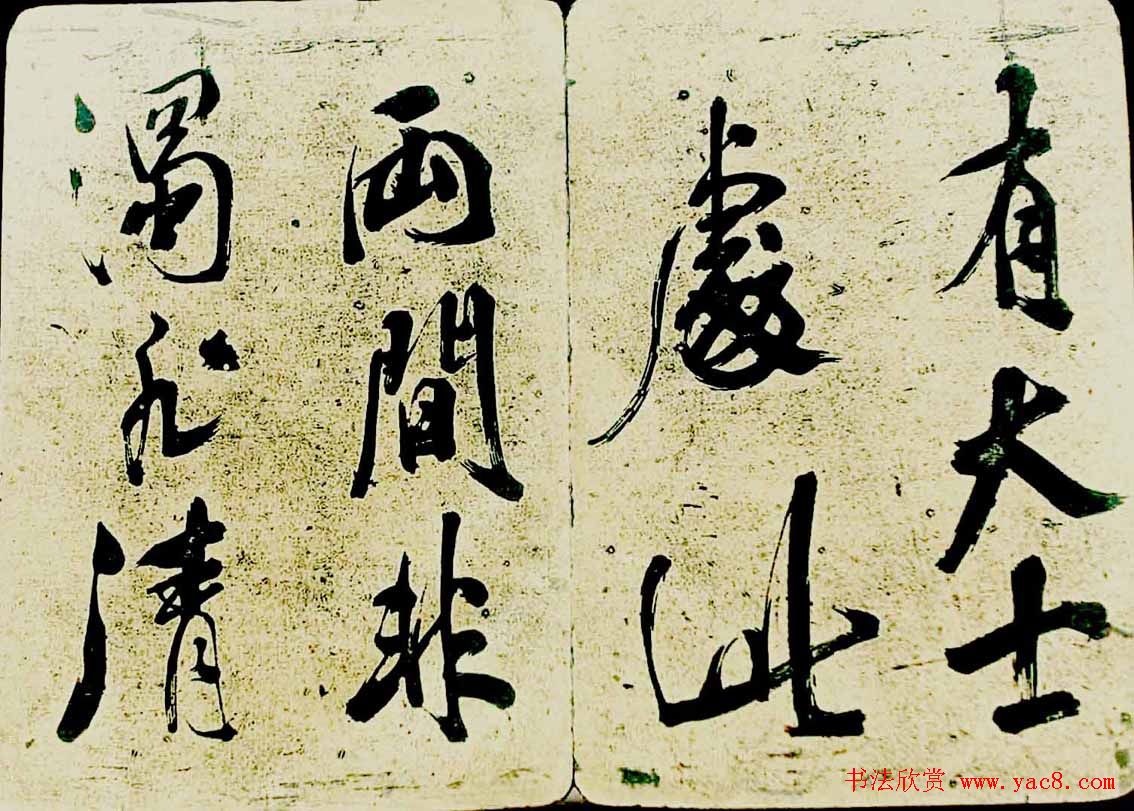 有大士
處此
兩間非
濁清
书法欣赏·www.yac8.com